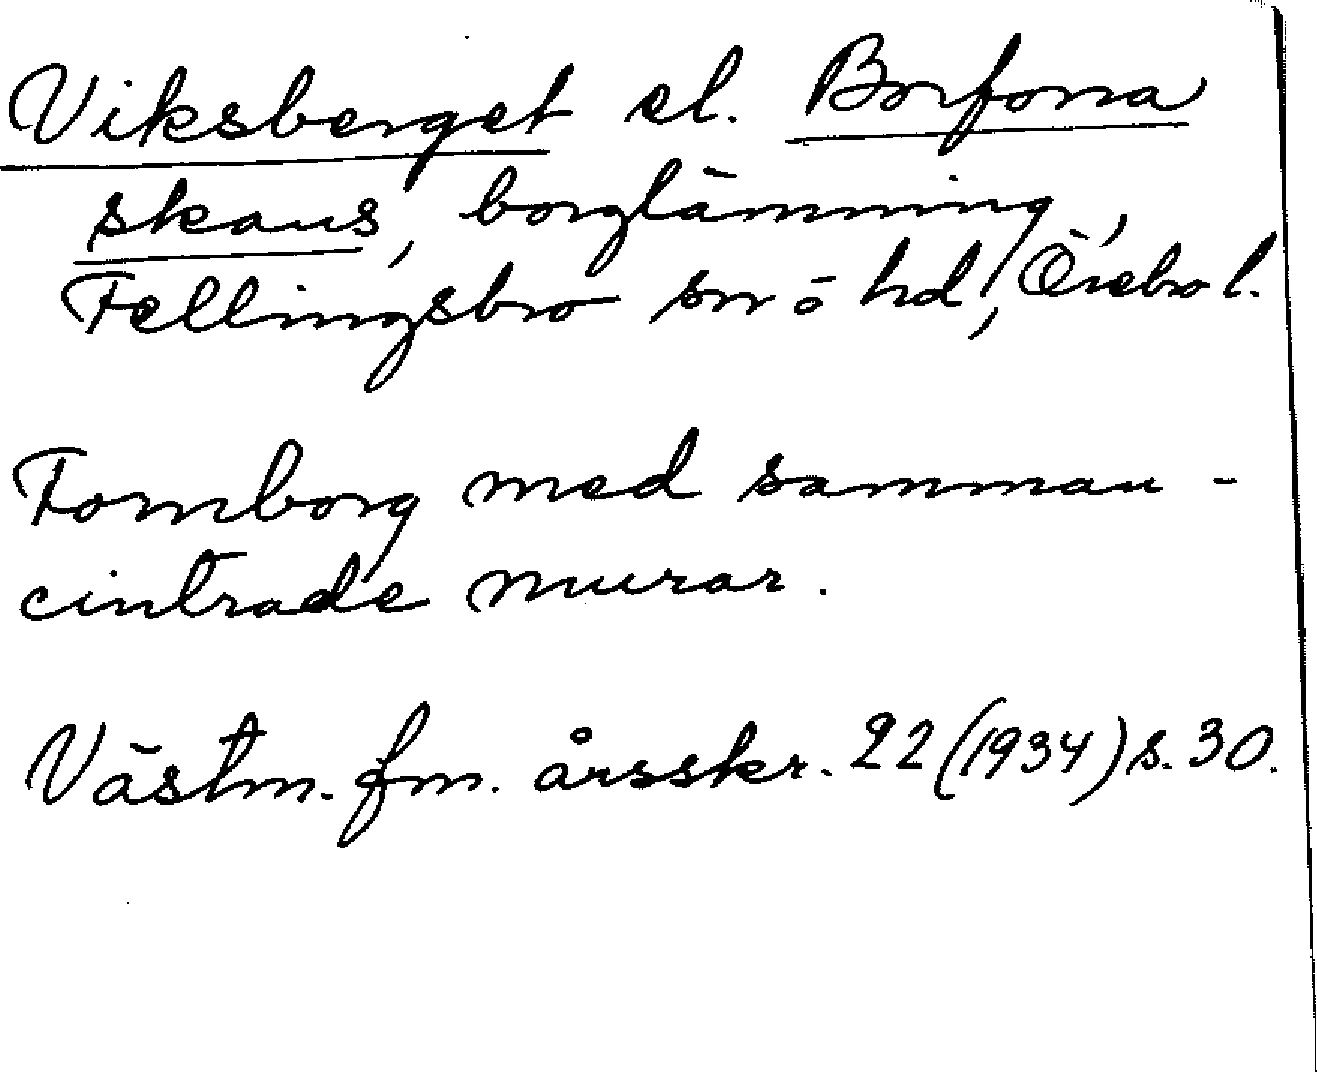 Viksberget el. Borforsa
skans, borglämning,
Fellingsbro sn ö hd, Örebro l.
Fornborg med samman-
cintrade murar.
Västm. fm. årsskr. 22 (1934) s. 30.